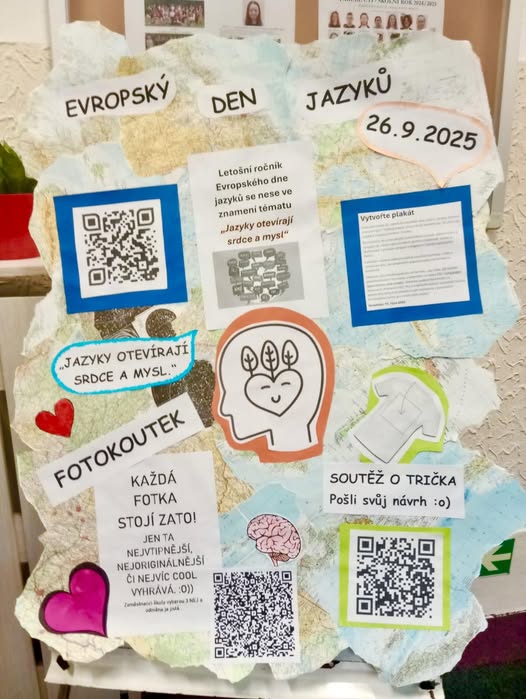 EVROPSKÝ DEN JAZYKŮ
26.9.2025
Letošní ročník
Evropského dne
jazyků se nese ve
znamení tématu
„Jazyky otevírají
srdce a mysl“
Vytvořte plakát
„JAZYKY OTEVÍRAJÍ
SRDCE A MYSL.“
FOTOKOUTEK
KAŽDÁ
FOTKA
STOJÍ ZATO!
JEN TA
NEJVTIPNĚJŠÍ,
NEJORIGINÁLNĚJŠÍ
ČI NEJVÍC COOL
VYHRÁVÁ. :O))
Zaměstnanci školy vyberou 3 NEJ a
odměna je jistá.
SOUTĚŽ O TRIČKA
Pošli svůj návrh :o)